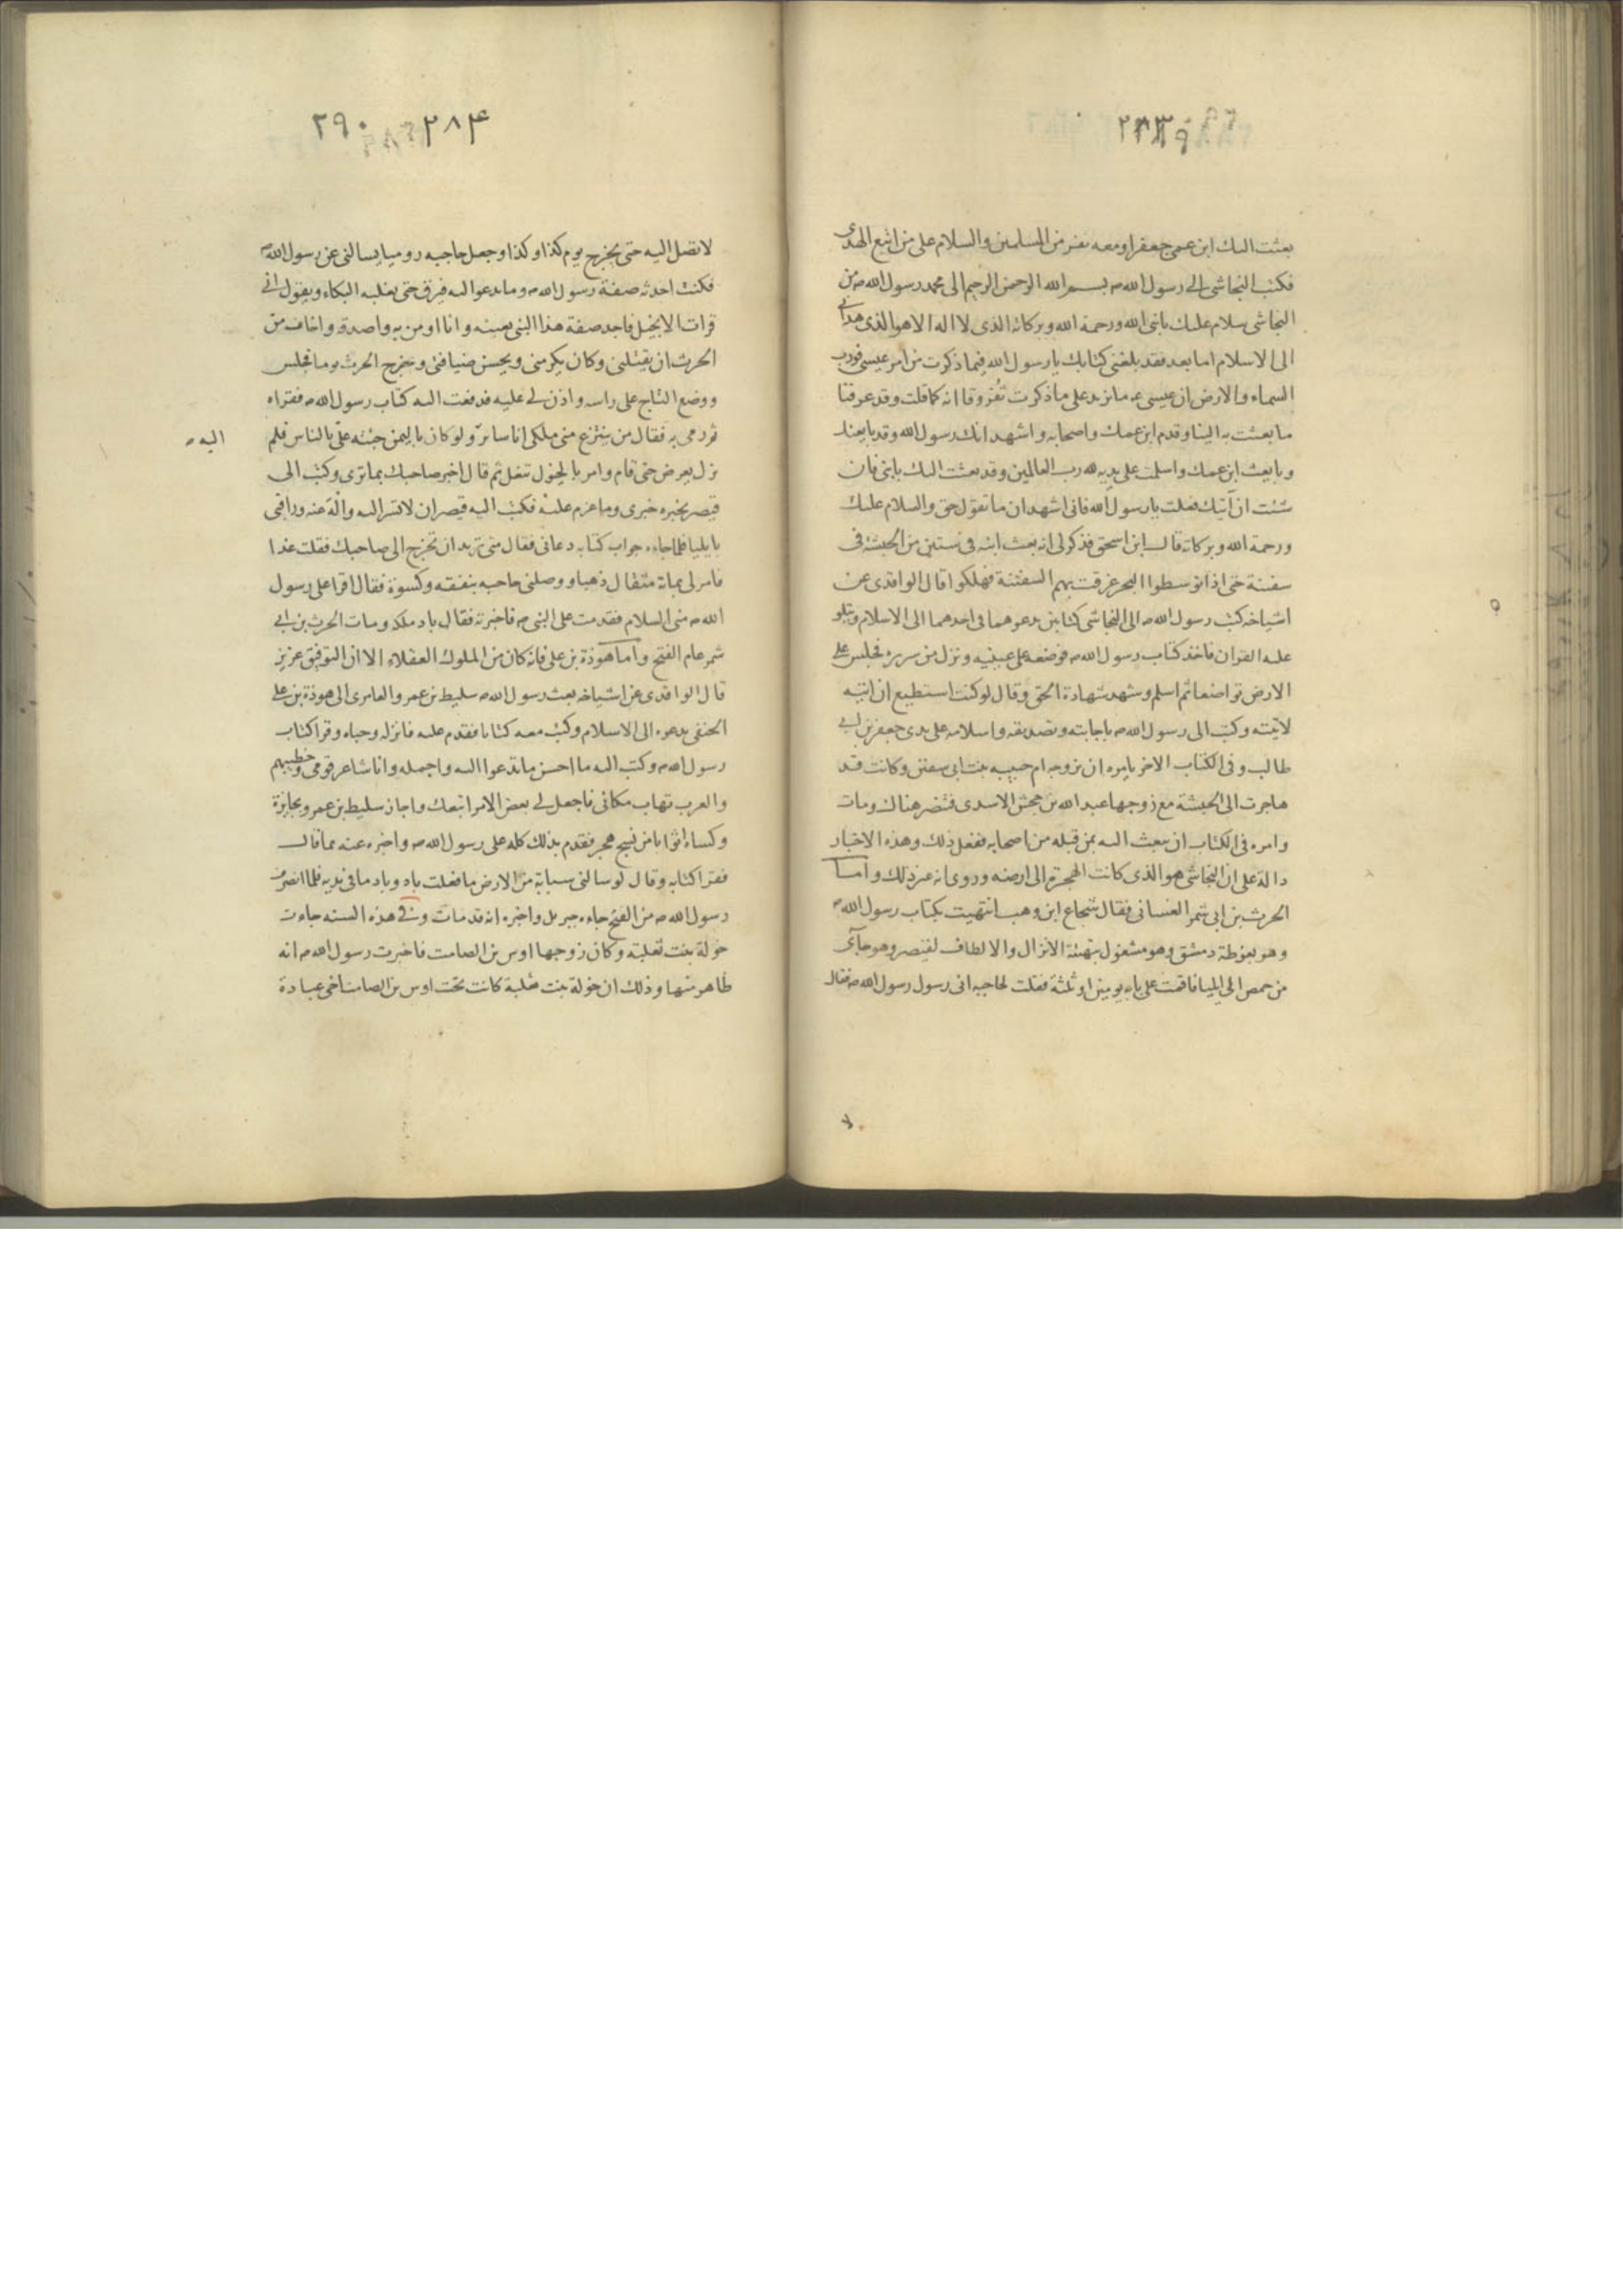 بعثت اليك ابن عمى جعفرا ومعه نفر من المسلمين والسلام على من اتبع الهدى
فكتب النجاشى الى رسول الله ص بسم الله الرحمن الرحيم الى محمد رسول الله ص من
النجاشى سلام عليك يا نبى الله ورحمة الله وبركاته الذى لا اله الا هو الذى هدانى
الى الاسلام اما بعد فقد بلغنى كتابك يا رسول الله فيما ذكرت من امر عيسى فورب
السماء والارض ان عيسى ع ما يزيد على ما ذكرت ثفروقا انه كما قلت وقد عرفنا
ما بعثت به الينا وقدم ابن عمك واصحابه واشهد انك رسول الله وقد بايعتك
وبايعت ابن عمك واسلمت على يديه لله رب العالمين وقد بعثت اليك بابنى فان
شئت ان آتيك فعلت يا رسول الله فانى اشهد ان ما تقول حق والسلام عليك
ورحمة الله وبركاته قال ابن اسحق فذكر لى انه بعث ابنه فى ستين من الحبشة فى
سفينة حتى اذا توسطوا البحر غرقت بهم السفينة فهلكوا قال الواقدى عن
اشياخه كتب رسول الله ص الى النجاشى كتابين يدعوهما فى احدهما الى الاسلام ويتلو
عليه القران فاخذ كتاب رسول الله ص فوضعه على عينيه ونزل من سريره فجلس على
الارض تواضعا ثم اسلم وشهد شهادة الحق وقال لو كنت استطيع ان اتيه
لاتيته وكتب الى رسول الله ص باجابته وتصديقه واسلامه على يدى جعفر بن ابى
طالب وفى الكتاب الاخر يامره ان يزوجه ام حبيبه بنت ابى سفين وكانت قد
هاجرت الى الحبشة مع زوجها عبد الله بن جحش الاسدى فتنصر هناك ومات
وامره فى الكتاب ان يبعث اليه بمن قبله من اصحابه ففعل ذلك وهذه الاخبار
دالة على ان النجاشى هو الذى كانت الهجرة الى ارضه وروى انه غير ذلك واما
الحرث بن ابى شمر الغسانى فقال شجاع ابن وهب انتهيت بكتاب رسول الله ص
وهو بغوطة دمشق وهو مشغول بتهيئة الانزال والالطاف لقيصر وهو جآئى
من حمص الى ايليا فاقمت على بابه يومين او ثلثة فقلت لحاجبه انى رسول رسول الله ص فقال
لا
٢٩٠ ٢٨۴
لا تصل اليه حتى يخرج يوم كذا وكذا وجعل حاجبه روميا يسالنى عن رسول الله ص
فكنت احدثه صفة رسول الله ص وما يدعو اليه فيرق حتى يغلبه البكاء ويقول انى
قرات الانجيل فاجد صفة هذا النبى بعينه وانا اومن به واصدقه واخاف من
الحرث ان يقتلنى وكان يكرمنى ويحسن ضيافتى وخرج الحرث يوما فجلس
ووضع التاج على راسه واذن لى عليه فدفعت اليه كتاب رسول الله ص فقراه
ثم رمى به فقال من ينتزع منى ملكى انا سائر ولو كان باليمن جئته علىّ بالناس فلم
اليه ص
يزل يعرض حتى قام وامر بالخيول تنعل ثم قال اخبر صاحبك بما ترى وكتب الى
قيصر يخبره خبرى وما عزم عليه فكتب اليه قيصر ان لا تسر اليه واله عنه ووافنى
بايليا فلما جاءه جواب كتابه دعانى فقال متى تريد ان تخرج الى صاحبك فقلت غدا
فامر لى بماية مثقال ذهبا ووصلنى حاجبه بنفقه وكسوة فقال اقرا على رسول
الله ص منى السلام فقدمت على النبى ص فاخبرته فقال باد ملكه ومات الحرث بن ابى
شمر عام الفتح واما هوذة بن على فانه كان من الملوك العقلاء الا ان التوفيق عزيز
قال الواقدى عن اشياخه بعث رسول الله ص سليط بن عمرو العامرى الى هوذة بن على
الحنفى يدعوه الى الاسلام وكتب معه كتابا فقدم عليه فانزله وحباه وقرا كتاب
رسول الله ص وكتب اليه ما احسن ما تدعوا اليه واجمله وانا شاعر قومى وخطيبهم
والعرب تهاب مكانى فاجعل لى بعض الامر اتبعك واجاز سليط بن عمرو بجايزة
وكساه اثوابا من نسج هجر فقدم بذلك كله على رسول الله ص واخبره عنه بما قال
فقرا كتابه وقال لو سالنى سيابة من الارض ما فعلت باد وباد ما فى يديه فلما انصرف
رسول الله ص من الفتح جاءه جبريل واخبره انه قد مات وفى هذه السنه جاءت
خولة بنت ثعلبه وكان زوجها اوس بن الصامت فاخبرت رسول الله ص انه
ظاهر منها وذلك ان خولة بنت ثعلبة كانت تحت اوس بن الصامت اخى عبادة